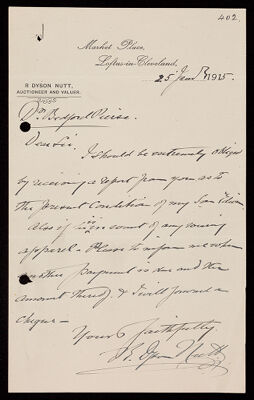 402.
Market Place,
Loftus-in-Cleveland.
25 Jany 1925.
R DYSON NUTT,
AUCTIONEER AND VALUER.
Dr. Bedford Pierce.
Dear Sir.
I should be extremely obliged
by receiving a report from you as to
the present Condition of my Son Edwin.
Also if in want of any
apparel - Please to inform me when
another payment is due and the
amount thereof & I will forward a
cheque -
Yours faithfully.
R. Dyson Nutt